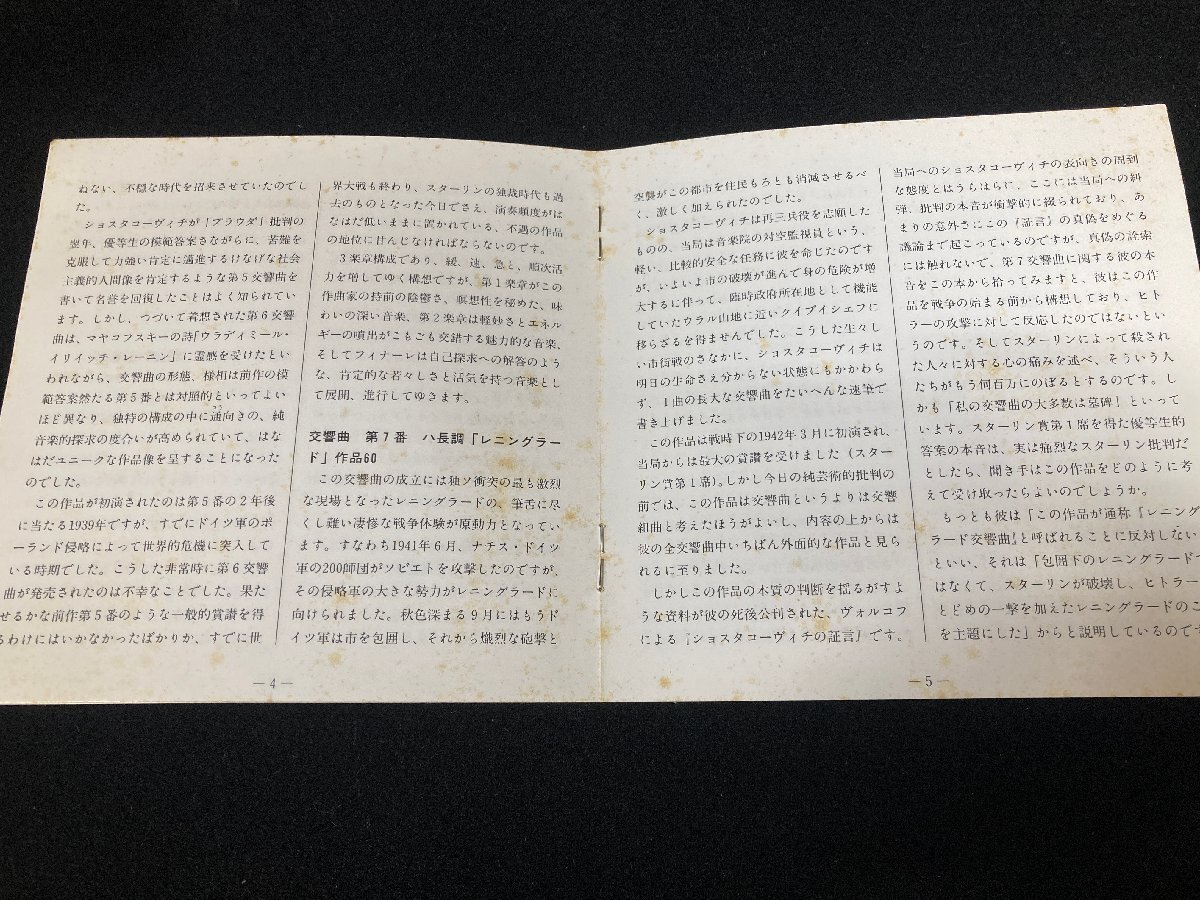 ねない、不穏な時代を招来させていたのでし
た。
ショスタコーヴィチが「プラウダ」批判の
翌年、優等生の模範答案さながらに、苦難を
克服して力強い肯定に邁進するけなげな社会
主義的人間像を肯定するような第5交響曲を
書いて名誉を回復したことはよく知られてい
ます。しかし、つづいて着想された第6交響
曲は、マヤコフスキーの詩「ウラディミール・
イリイッチ・レーニン」に霊感を受けたとい
われながら、交響曲の形態、様相は前作の模
範答案然たる第5番とは対蹠的といってよい
ほど異なり、独特の構成の中に通向きの、純
音楽的探求の度合いが高められていて、はな
はだユニークな作品像を呈することになった
のでした。
この作品が初演されたのは第5番の2年後
に当たる1939年ですが、すでにドイツ軍のポ
ーランド侵略によって世界的危機に突入して
いる時期でした。こうした非常時に第6交響
曲が発売されたのは不幸なことでした。果た
せるかな前作第5番のような一般的賞讃を得
るわけにはいかなかったばかりか、すでに世
界大戦も終わり、スターリンの独裁時代も過
去のものとなった今日でさえ、演奏頻度がは
なはだ低いままに置かれている、不遇の作品
の地位に甘んじなければならないのです。
3楽章構成であり、緩、速、急と、順次活
力を増してゆく構想ですが、第1楽章がこの
作曲家の持前の陰鬱さ、瞑想性を秘めた、味
わいの深い音楽、第2楽章は軽妙さとエネル
ギーの噴出がこもごも交錯する魅力的な音楽、
そしてフィナーレは自己探求への解答のよう
な、肯定的な若々しさと活気を持つ音楽とし
て展開、進行してゆきます。
交響曲 第7番 ハ長調「レニングラー
ド」作品60
この交響曲の成立には独ソ衝突の最も激烈
な現場となったレニングラードの、筆舌に尽
くし難い凄惨な戦争体験が原動力となってい
ます。すなわち1941年6月、ナチス・ドイツ
軍の200師団がソビエトを攻撃したのですが、
その侵略軍の大きな勢力がレニングラードに
向けられました。秋色深まる9月にはもうド
イツ軍は市を包囲し、それから熾烈な砲撃と
― 4 ―
空襲がこの都市を住民もろとも消滅させるべ
く、激しく加えられたのでした。
ショスタコーヴィチは再三兵役を志願した
ものの、当局は音楽院の対空監視員という、
軽い、比較的安全な任務に彼を命じたのです
が、いよいよ市の破壊が進んで身の危険が増
大するに伴って、臨時政府所在地として機能
していたウラル山地に近いクイブイシェフに
移らざるを得ませんでした。こうした生々し
い市街戦のさなかに、ショスタコーヴィチは
明日の生命さえ分からない状態にもかかわら
ず、1曲の長大な交響曲をたいへんな速筆で
書き上げました。
この作品は戦時下の1942年3月に初演され、
当局からは最大の賞讃を受けました（スター
リン賞第1席）。しかし今日の純芸術的批判の
前では、この作品は交響曲というよりは交響
組曲と考えたほうがよいし、内容の上からは
彼の全交響曲中いちばん外面的な作品と見ら
れるに至りました。
しかしこの作品の本質の判断を揺るがすよ
うな資料が彼の死後公刊された、ヴォルコフ
による『ショスタコーヴィチの証言』です。
当局へのショスタコーヴィチの表向きの周到
な態度とはうらはらに、ここには当局への糾
弾、批判の本音が衝撃的に綴られており、あ
まりの意外さにこの『証言』の真偽をめぐる
議論まで起こっているのですが、真偽の詮索
には触れないで、第7交響曲に関する彼の本
音をこの本から拾ってみますと、彼はこの作
品を戦争の始まる前から構想しており、ヒト
ラーの攻撃に対して反応したのではないとい
うのです。そしてスターリンによって殺され
た人々に対する心の痛みを述べ、そういう人
たちがもう何百万にのぼるとするのです。し
かも「私の交響曲の大多数は墓碑」といって
います。スターリン賞第1席を得た優等生的
答案の本音は、実は痛烈なスターリン批判だ
としたら、聞き手はこの作品をどのように考
えて受け取ったらよいのでしょうか。
もっとも彼は「この作品が通称『レニング
ラード交響曲』と呼ばれることに反対しない
といい、それは『包囲下のレニングラードで
はなくて、スターリンが破壊し、ヒトラー
とどめの一撃を加えたレニングラードのこ
を主題にした」からと説明しているのです
― 5 ―